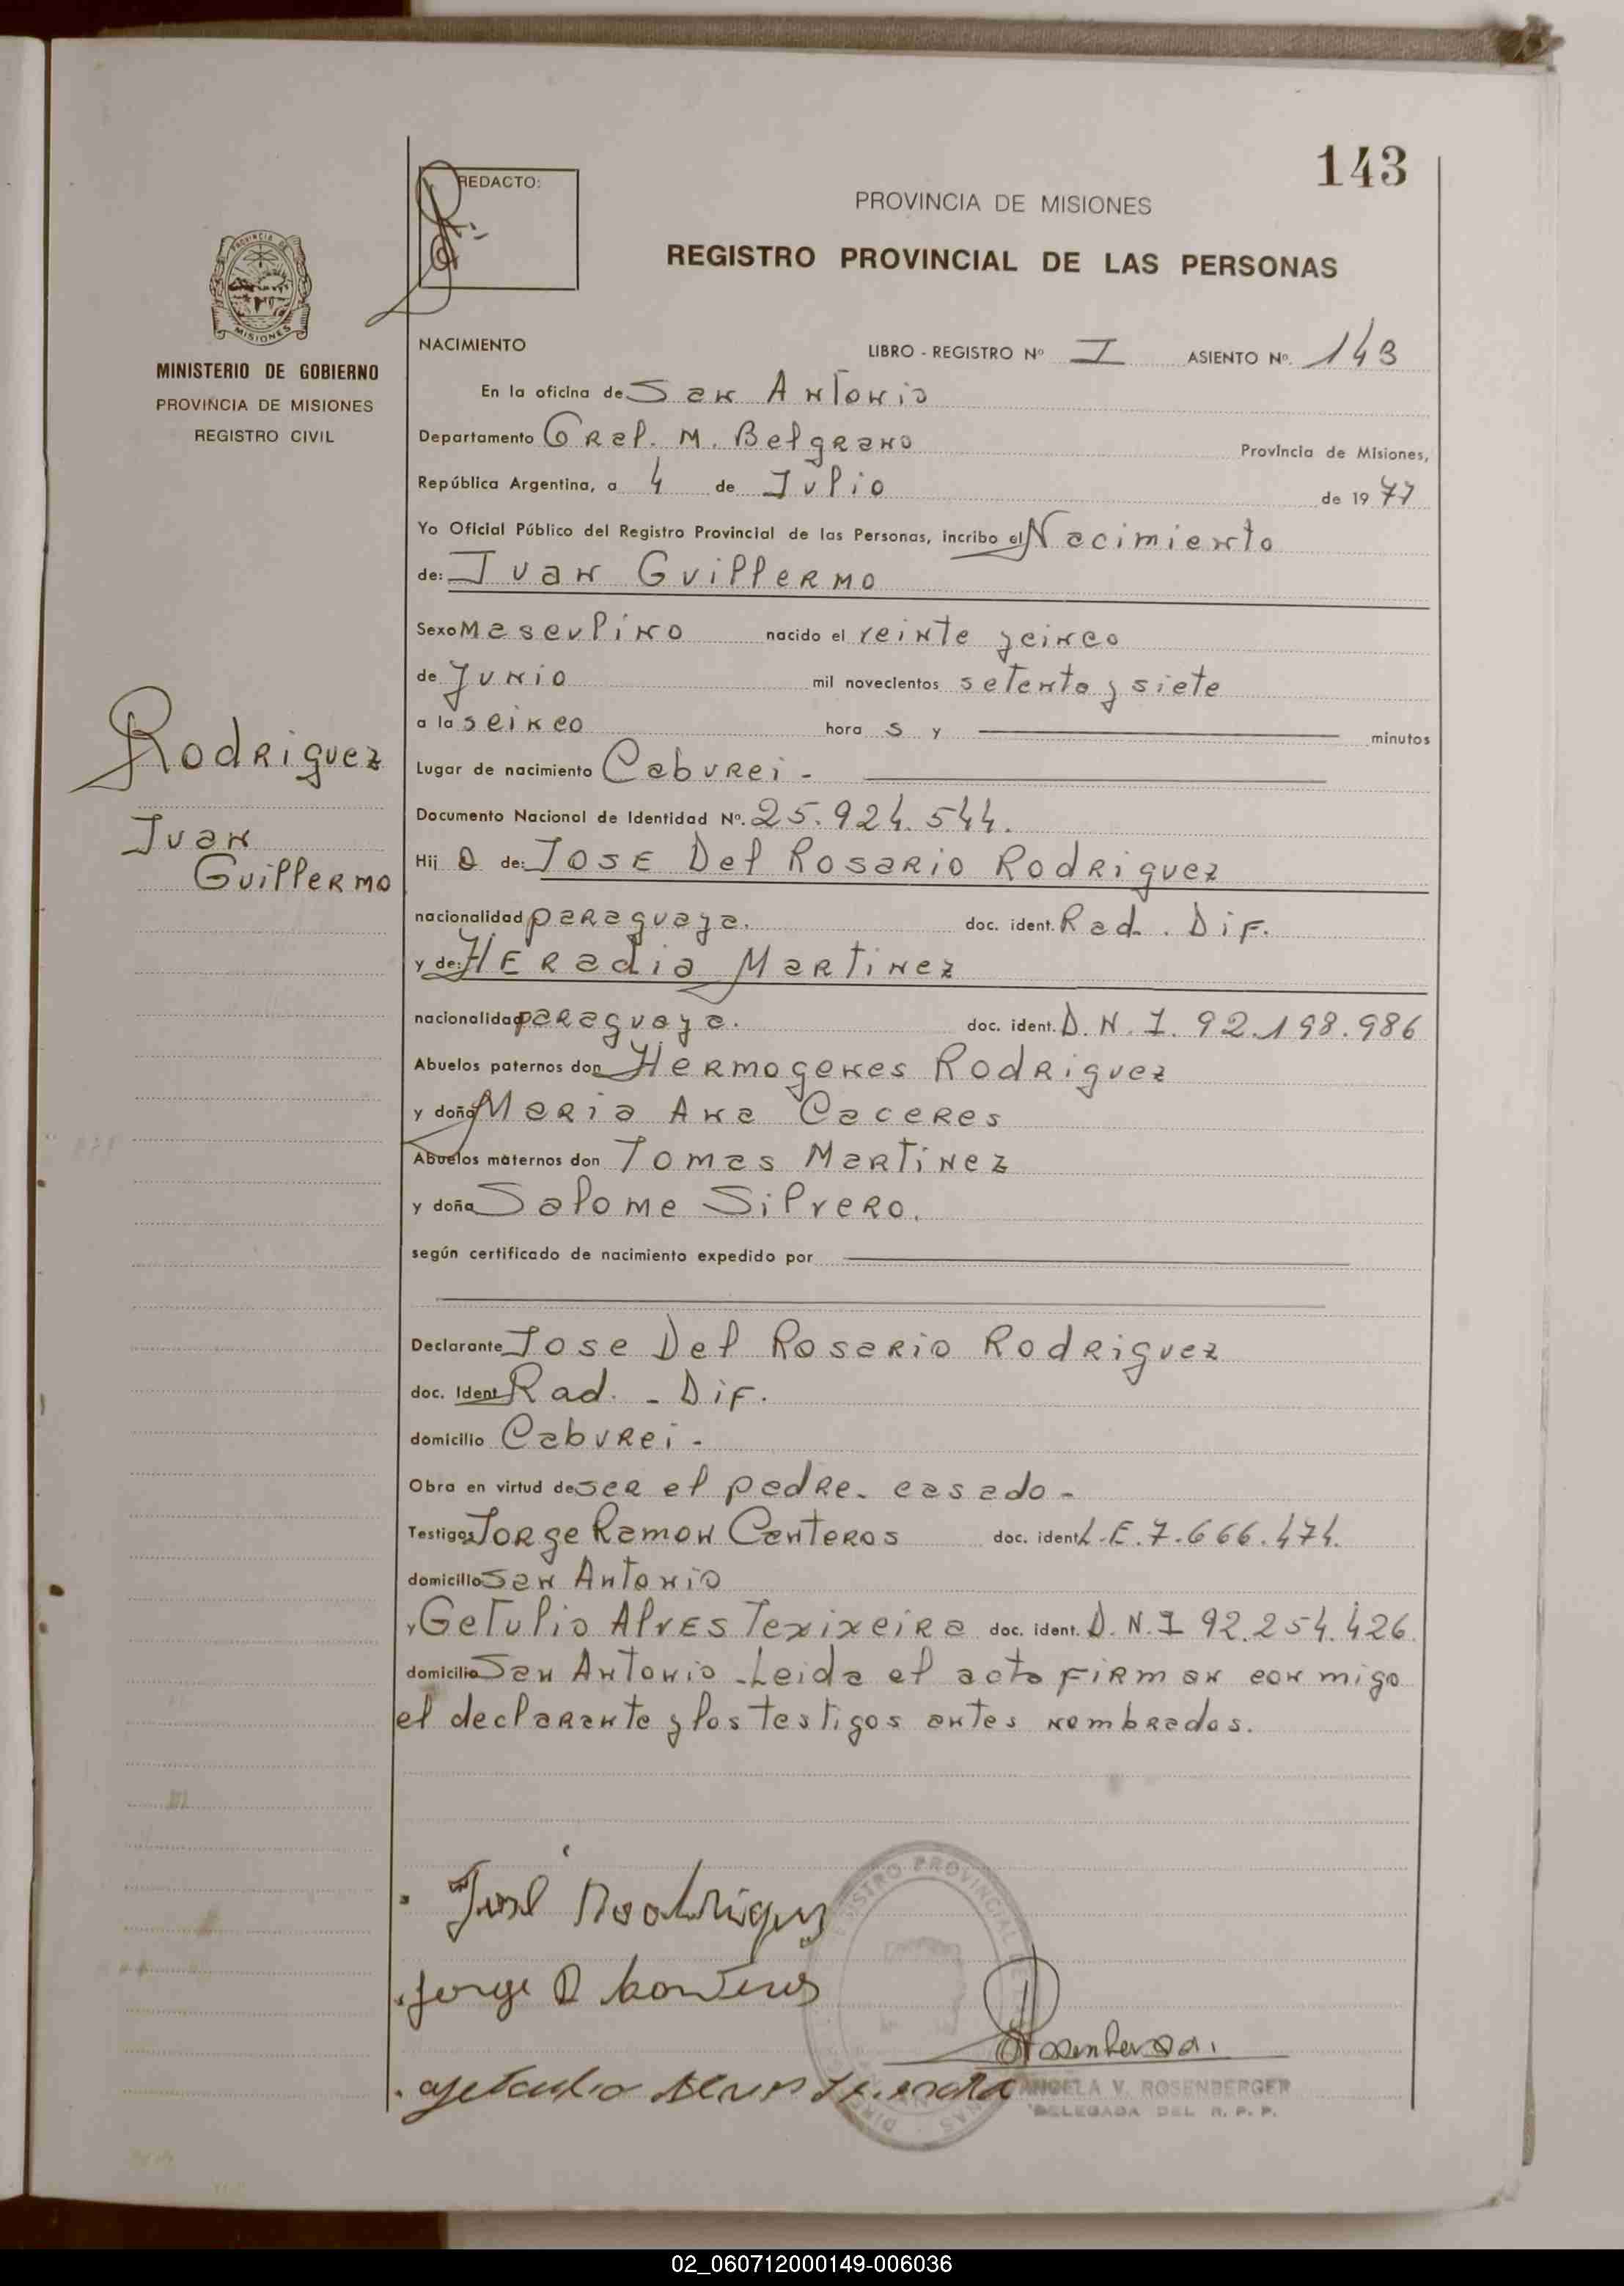 143
REDACTO:
PROVINCIA DE MISIONES
REGISTRO PROVINCIAL DE LAS PERSONAS
PROVINCIA DE
MISIONES
MINISTERIO DE GOBIERNO
PROVINCIA DE MISIONES
REGISTRO CIVIL
NACIMIENTO LIBRO - REGISTRO Nº I ASIENTO Nº. 143
En la oficina de San Antonio
Departamento Gral. M. Belgrano Provincia de Misiones,
República Argentina, a 4 de Julio de 1977
Yo Oficial Público del Registro Provincial de las Personas, incribo el Nacimiento
de: Juan Guillermo
Sexo Masculino nacido el veinte y cinco
de Junio mil novecientos setenta y siete
a la s cinco hora s y minutos
Rodriguez
Juan
Guillermo
Lugar de nacimiento Caburei -
Documento Nacional de Identidad Nº. 25.924.544.
Hij o de: Jose Del Rosario Rodriguez
nacionalidad paraguaya. doc. ident. Rad. Dif.
y de: Heradia Martinez
nacionalidad paraguaya. doc. ident. D.N.I. 92.198.986
Abuelos paternos don Hermogenes Rodriguez
y doña Maria Ana Caceres
Abuelos maternos don Tomas Martinez
y doña Salome Silvero.
según certificado de nacimiento expedido por
Declarante Jose Del Rosario Rodriguez
doc. Ident Rad. - Dif.
domicilio Caburei -
Obra en virtud de ser el padre. casado -
Testigos Jorge Ramon Canteros doc. ident L.E. 7.666.474.
domicilio San Antonio
y Getulio Alves Texixeira doc. ident. D.N.I 92.254.426.
domicilio San Antonio - Leida el acta firman con migo
el declarante y los testigos antes nombrados.
José Rodriguez
Jorge R Canteros
REGISTRO PROVINCIAL DE
ANGELA V. ROSENBERGER
DELEGADA DEL R. P. P.
02_060712000149-006036